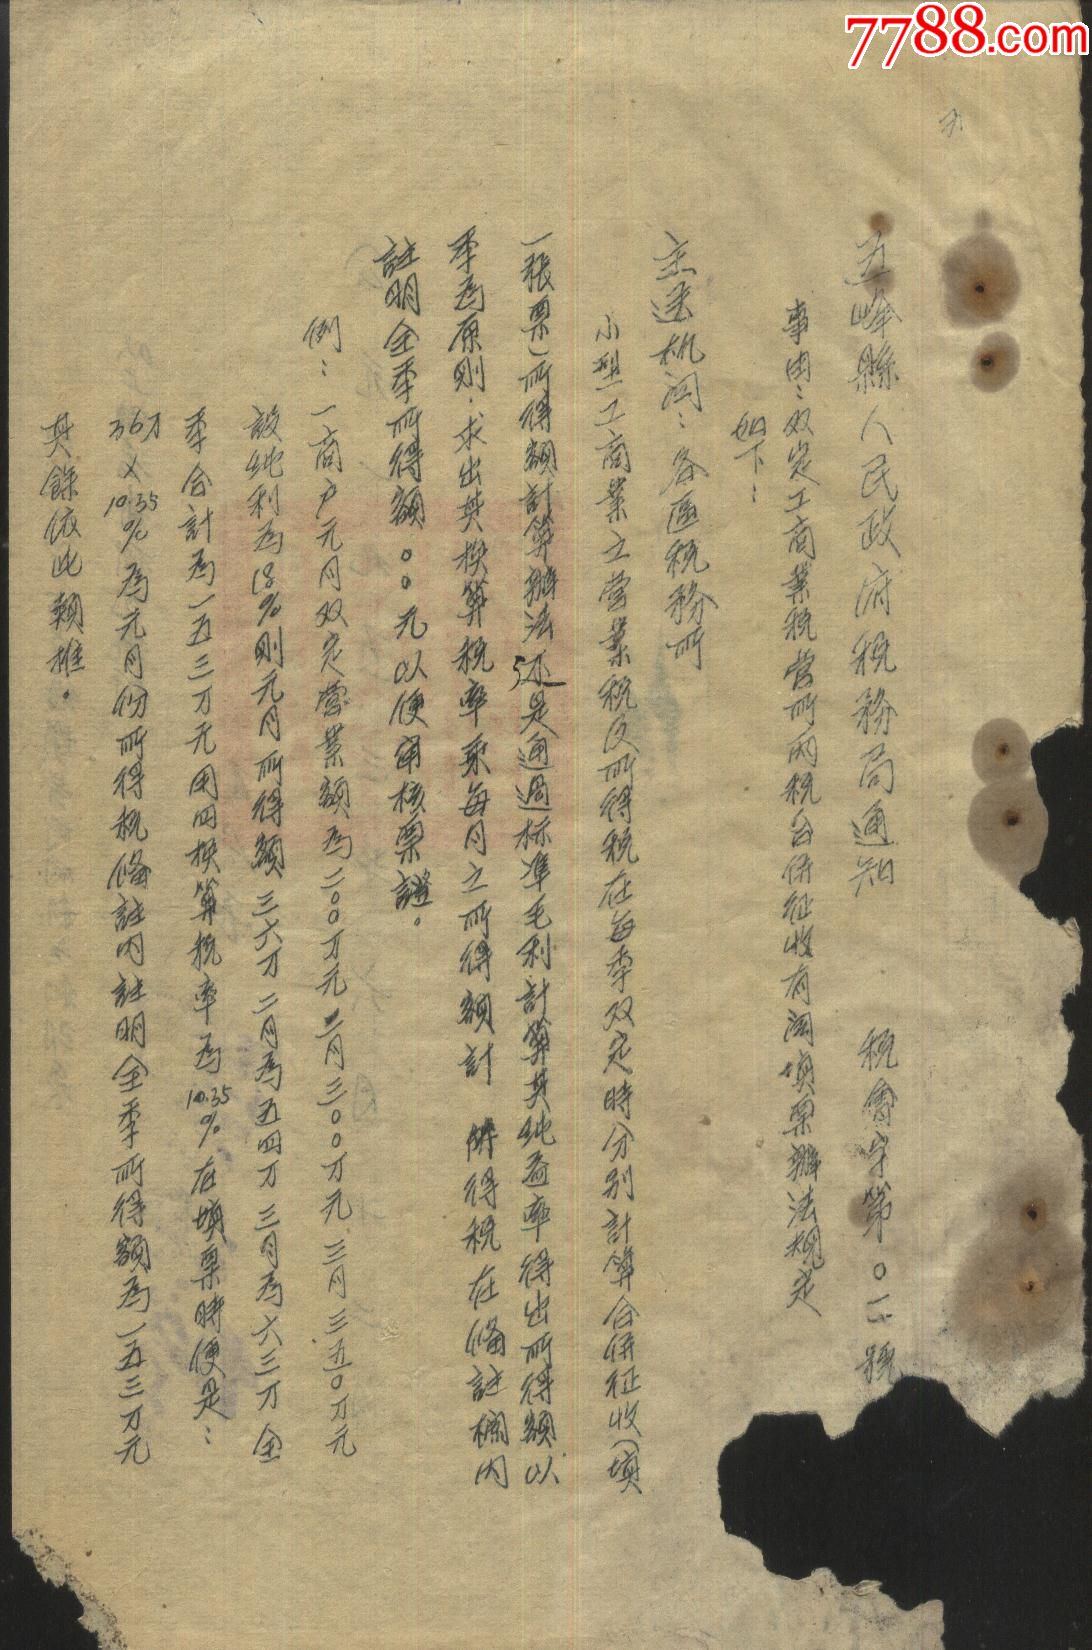 7788.com
五峰縣人民政府税務局通知　税會字第〇一號
事由：双定工商業税营所两税合併征收有関填票辦法規定
如下：
主送机関：各區税務所
小型工商業之营業税及所得税在每季双定時分别計算合併征收(填
一張票)所得額計算辦法还是通過标準毛利計算其纯益率得出所得額以
季為原則.求出其换算税率乘每月之所得額計 併得税在俻註欄内
註明全季所得額〇〇元以便审核票證。
例：一商户元月双定营業額為二〇〇万元二月三〇〇万元三月三五〇万元
設纯利為18%則元月所得額三六万二月為五四万三月為六三万全
季合計為一五三万元用四换算税率為10.35%在填票時便是：
36万×10.35%為元月份所得税俻註内註明全季所得額為一五三万元
其餘依此類推。